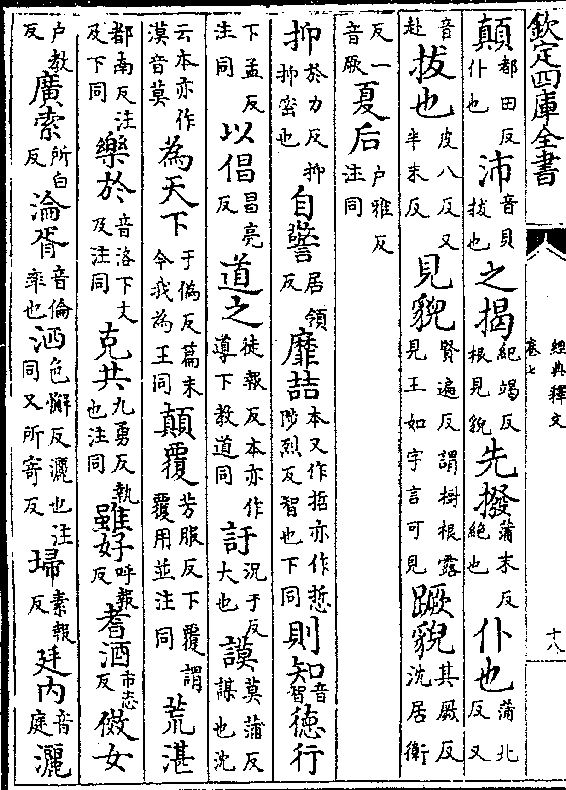 欽定四庫全書
經典釋文
卷七
十八
顛都田反仆也沛音貝拔也之揭紀竭反根見貌先撥蒲末反絶也仆也蒲北反又
音赴拔也皮八反又半末反見貌賢遍反謂樹根露見王如字言可見蹶貌其厥反沈居衛
反一音厥夏后户雅反注同
抑於力反抑抑密也自警居領反靡喆本又作哲亦作悊陟烈反智也下同則知音智德行
下孟反注同以倡昌亮反道之徒報反本亦作導下教道同訏況于反大也謨莫蒲反謀也沈
云本亦作漠音莫為天下于偽反篇末今我為王同顛覆芳服反下覆謂覆用並注同荒湛
都南反注及下同樂於音洛下文及注同克共九勇反執也注同雖好呼報反耆酒市志反傚女
户教反廣索所白反淪胥音倫率也洒色懈反灑也注同又所寄反埽素報反廷内音庭灑